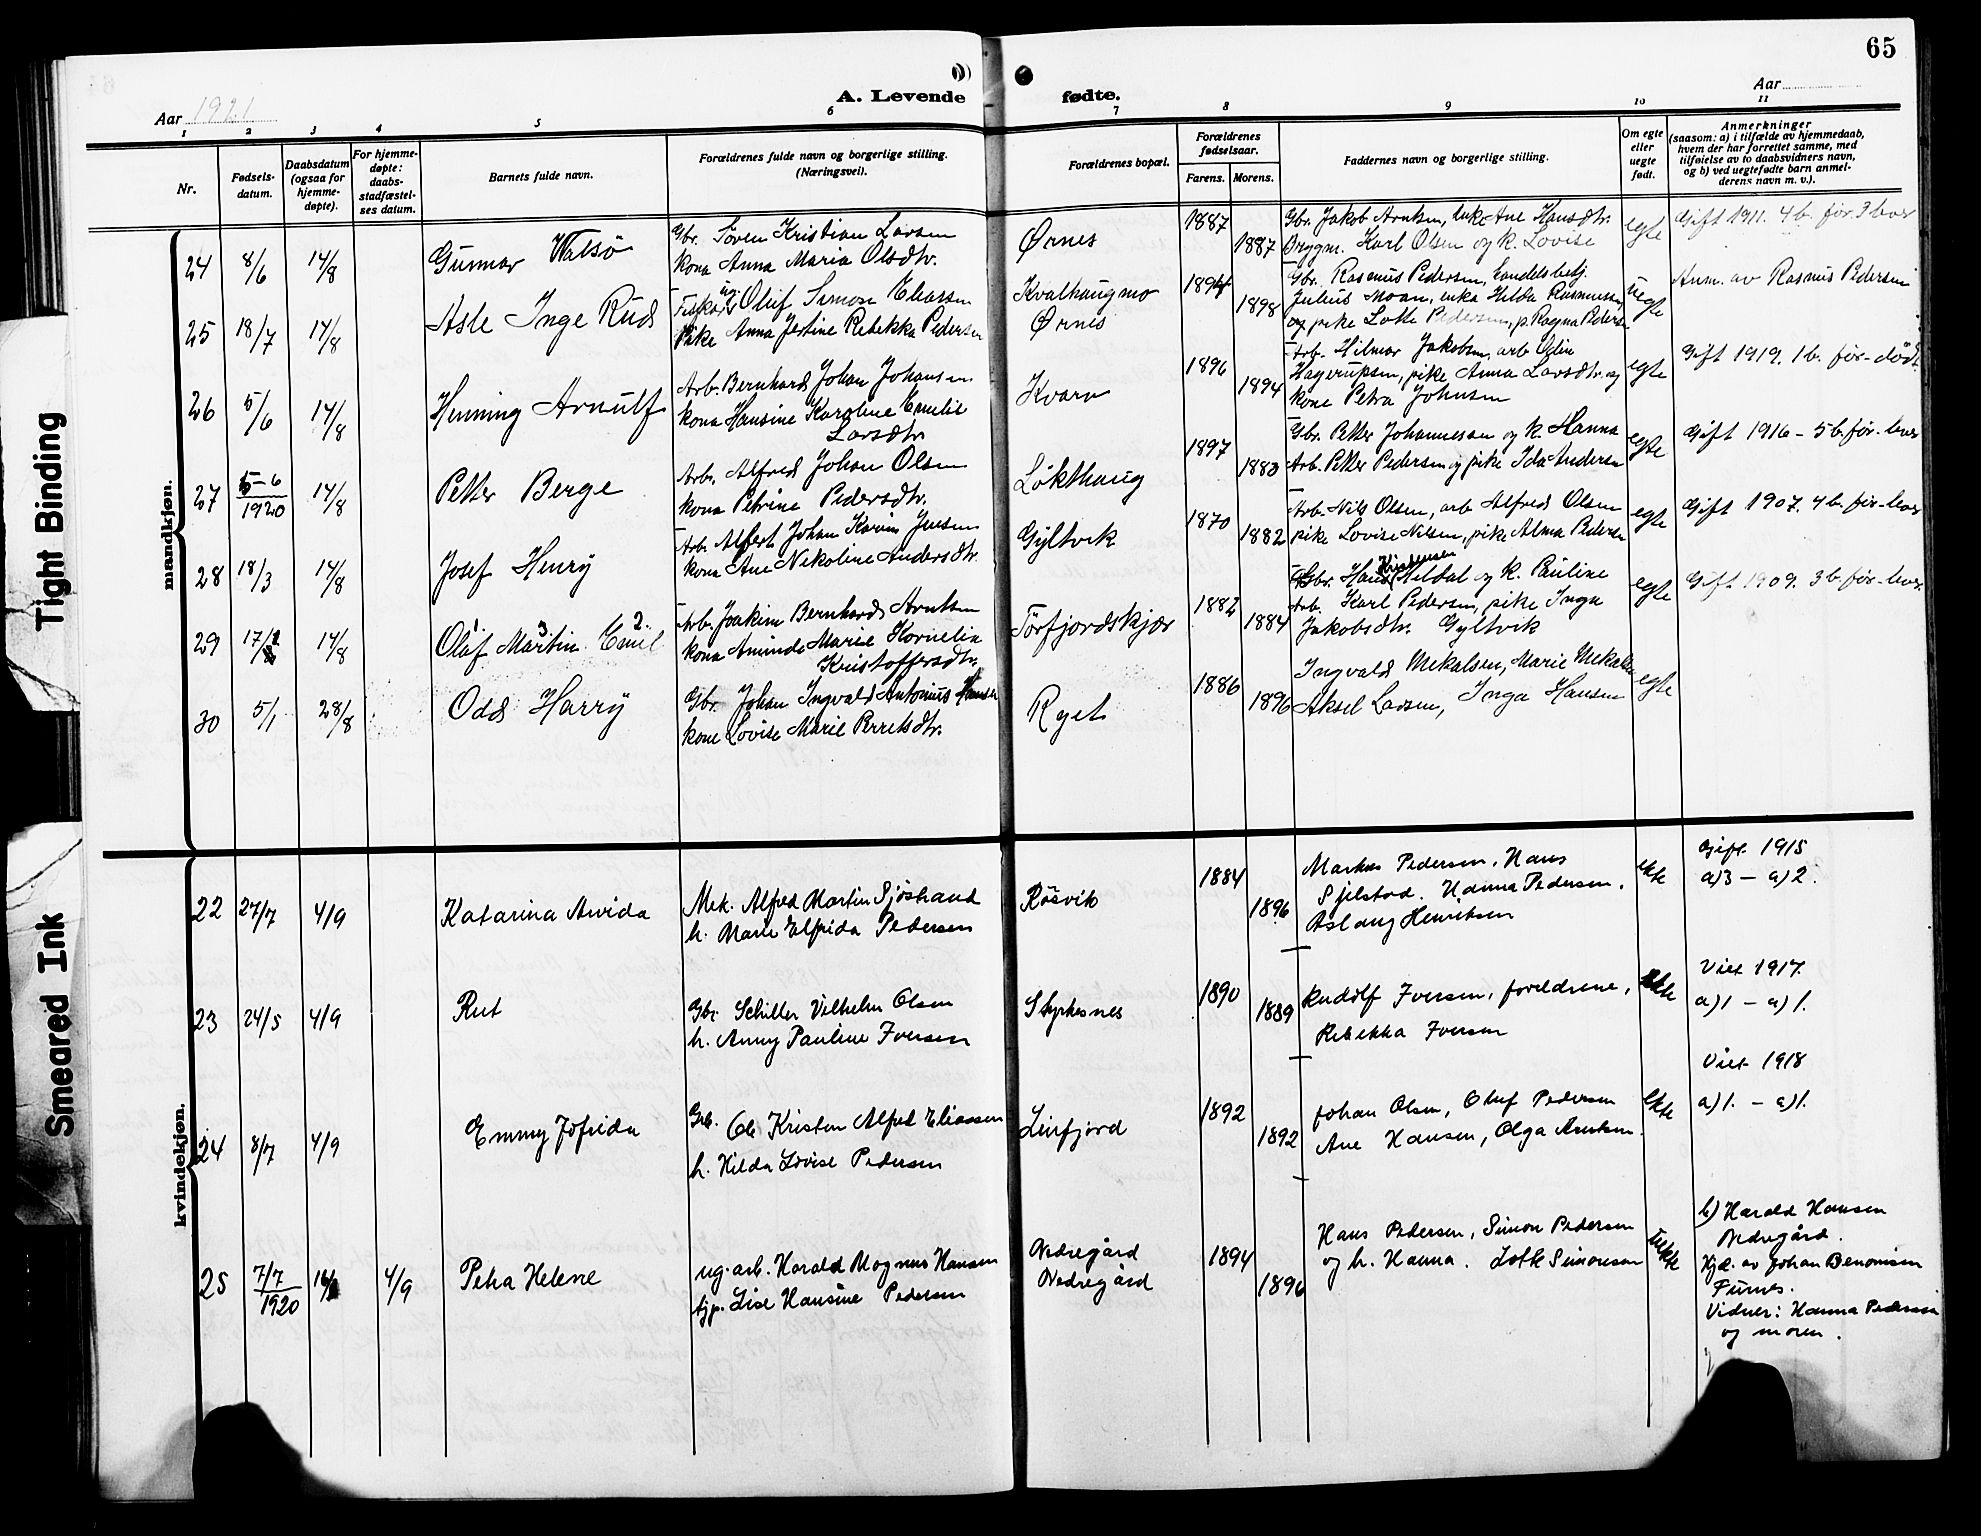 65
A. Levende fødte.
Aar 1921
Aar
1 2 3 4 5 6 7 8 9 10 11
Nr.
Fødsels-
datum.
Daabsdatum
(ogsaa for
hjemme-
døpte).
For hjemme-
døpte:
daabs-
stadfæstel-
ses datum.
Barnets fulde navn.
Forældrenes fulde navn og borgerlige stilling.
(Næringsvei).
Forældrenes bopæl.
Forældrenes
fødselsaar.
Farens. Morens.
Faddernes navn og borgerlige stilling.
Om egte
eller
uegte
født.
Anmerkninger
(saasom: a) i tilfælde av hjemmedaab,
hvem der har forrettet samme, med
tilføielse av to daabsvidners navn,
og b) ved uegtefødte barn anmel-
derens navn m. v.).
mandkjøn.
24 8/6 14/8 Gunnar Watsø
Gbr. Søren Kristian Larsen
kona Anna Maria Olsdtr.
Ørnes
1887 1887
Gbr. Jakob Arntsen, enke Ane Hansdtr.
Brygm. Karl Olsen og k. Lovise
egte
Gift 1911. 4 b. før. 3 lever
25 18/7 14/8 Asle Inge Ruds
Fisker ug. Oluf Simon Eliassen
Pike Anna Jertine Rebekka Pedersen
Kvalhaugmo
Ørnes
1894 1898
Gbr. Rasmus Pedersen, handelsbetj.
Julius Moan, enke Hilda Rasmussen
og pike Lotte Pedersen, p. Ragna Pedersen
uegte
Anm. av Rasmus Pedersen
26 5/6 14/8 Henning Arnulf
Arb. Bernhard Johan Johansen
kona Hansine Karoline Emelie
Larsdtr.
Kvarv
1896 1894
Arb. Hilmar Jakobsen, arb. Odin
Hagerupsen, pike Anna Larsdtr. og
kone Petra Johnsen
egte
Gift 1919. 1 b. før - død.
27 5-6
1920
14/8 Petter Berge
Arb. Alfred Johan Olsen
kona Petrine Pedersdtr.
Løkthaug
1897 1883
Gbr. Petter Johannessen og k. Hanna
Arb. Petter Pedersen og pike Ida Andersen
egte
Gift 1916 - 5 b. før - lever
28 18/3 14/8 Josef Henry
Arb. Alfert Johan Karim Jensen
kona Ane Nikoline Andersdtr.
Gyltvik
1870 1882
Arb. Nils Olsen, arb. Alfred Olsen
pike Lovise Nilsen, pike Alma Pedersen
egte
Gift 1907. 4 b. før - lever
29 14/8 Olaf Martin Emil
1 3 2.
Arb. Joakim Bernhard Arntsen
kona Aminda Marie Kornelia
Kristoffersdtr.
Tørfjordskjær
1882 1884
Gbr. Hans Kristensen Aildal og k. Pauline
Arb. Karl Pedersen, pike Inga
Jakobsdtr. Gyltvik
egte
Gift 1909. 3 b. før - lever.
30 5/1 28/8 Odd Harry
Gbr. Johan Ingvald Antonius Hansen
kone Lovise Marie Perretsdtr.
Ryet
1886 1896
Ingvald Mikalsen, Marie Mikalsen
Aksel Larsen, Inga Hansen
egte
kvindekjøn.
22 27/7 4/9 Katarina Arvida
Mek. Alfred Martin Sjøstrand
h. Marie Elfrida Pedersen
Røsvik
1884 1896
Markus Pedersen, Hans
Sjelstad. Hanna Pedersen,
Aslaug Henriksen
ekte
Gift 1915
a)3 - a)2.
23 24/5 4/9 Rut
Gbr. Schiller Vilhelm Olsen
h. Anny Pauline Iversen
Styrkesnes
1890 1889
Rudolf Iversen, foreldrene,
Rebekka Iversen
ekte
Viet 1917.
a)1 - a)1.
24 8/7 4/9 Emmy Jofrida
Grb. Ole Kristen Alfred Eliassen
h. Hilda Lovise Pedersen
Leirfjord
1892 1892
Johan Olsen, Oluf Pedersen
Ane Hansen, Olga Arntsen.
ekte
Viet 1918
a)1. - a)1.
25 7/7
1920
4/9 Petra Helene
ug. arb. Harald Magnus Hansen
tjp. Lise Hansine Pedersen
Nedregård
Nedregård
1894 1896
Hans Pedersen, Simon Pedersen
og h. Hanna. Lotte Simonsen
uekte
b) Harald Hansen
Nedregård.
Hjd. av Johan Benonisen
Furnes.
Vidner: Hanna Pedersen
og moren.
Tight Binding
Smeared Ink